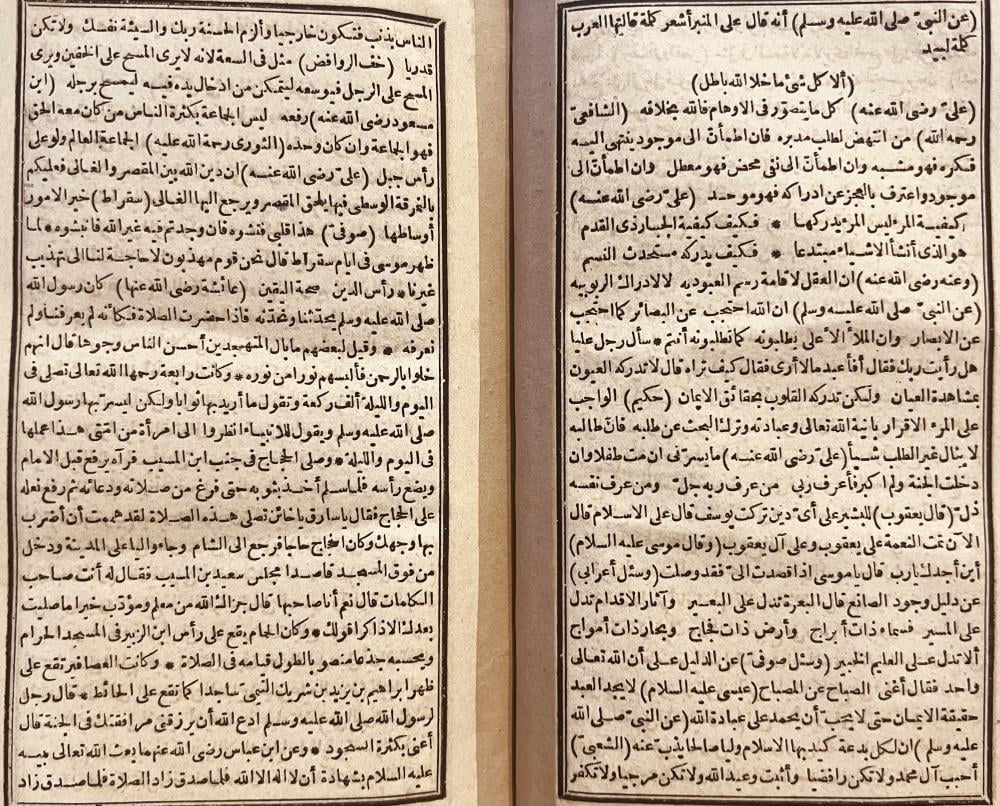 (عن النبى صلى الله عليه وسلم) أنه قال على المنبر أشعر كلمة قالتها العرب
كلمة لبيد
(ألا كل شئ ما خلا الله باطل)
(على رضى الله عنه) كل ما يتصور فى الاوهام فالله بخلافه (الشافعى
رحمه الله) من انتهض لطلب مدبره فان اطمأن الى موجود ينتهى اليه
فكره فهو مشبه وان اطمأن الى نفى محض فهو معطل وان اطمأن الى
موجود واعترف بالعجز عن ادراكه فهو موحد (على رضى الله عنه)
كيفية المرء ليس المرء يدركها * فكيف كيفية الجبار ذى القدم
هو الذى أنشأ الاشياء مبتدعا * فكيف يدركه مستحدث النسم
(وعنه رضى الله عنه) ان العقل لاقامة رسم العبودية لا لادراك الربوبيه
(عن النبى صلى الله عليه وسلم) ان الله احتجب عن البصائر كما احتجب
عن الابصار وان الملأ الأعلى يطلبونه كما تطلبونه أنتم * سأل رجل عليا
هل رأيت ربك فقال أفأعبد ما لا أرى فقال كيف تراه قال لا تدركه العيون
بمشاهدة العيان ولكن تدركه القلوب بحقائق الايمان (حكيم) الواجب
على المرء الاقرار بانية الله تعالى وعبادته وترك البحث عن طلبه فان طالبه
لا ينال غير الطلب شيأ (على رضى الله عنه) ما يسرنى ان مت طفلا وان
دخلت الجنة ولم اكبر فأعرف ربى من عرف ربه جل ومن عرف نفسه
ذل (قال يعقوب) للبشير على أى دين تركت يوسف قال على الاسلام قال
الآن تمت النعمة على يعقوب وعلى آل يعقوب (وقال موسى عليه السلام)
أين أجدك يارب قال ياموسى اذا قصدت الى فقد وصلت (وسئل أعرابى)
عن دليل وجود الصانع قال البعرة تدل على البعير وآثار الاقدام تدل
على المسير فسماء ذات أبراج وأرض ذات فجاج وبحار ذات أمواج
ألا تدل على العليم الخبير (وسئل صوفى) عن الدليل على أن الله تعالى
واحد فقال أغنى الصباح عن المصباح (عيسى عليه السلام) لا يجد العبد
حقيقة الايمان حتى لا يحب أن يحمد على عبادة الله (عن النبى صلى الله
عليه وسلم) ان لكل بدعة كيد بها الاسلام وليا صالحا يذب عنه (الشعبى)
أحبب آل محمد ولا تكن رافضيا وأثبت وعيد الله ولا تكن مرجيا ولا تكفر
الناس بذنب فتكون خارجيا وألزم الحسنة ربك والسيئة نفسك ولا تكن
قدريا (خف الروافض) مثل فى السعة لانه لا يرى المسح على الخفين ويرى
المسح على الرجل فيوسعه ليتمكن من ادخال يده فيه ليمسح برجله (ابن
مسعود رضى الله عنه) رفعه ليس الجماعة بكثرة الناس من كان معه الحق
فهو الجماعة وان كان وحده (الثورى رحمة الله عليه) الجماعة العالم ولو على
رأس جبل (على رضى الله عنه) ان دين الله بين المقصر والغالى فعليكم
بالفرقة الوسطى فبها يلحق المقصر ويرجع اليها الغالى (سقراط) خير الامور
أوساطها (صوفى) هذا قلبى فتشوه فان وجدتم فيه غير الله فانبشوه * لما
ظهر موسى فى ايام سقراط قال نحن قوم مهذبون لا حاجة لنا الى تهذيب
غيرنا * رأس الدين صحة اليقين (عائشة رضى الله عنها) كان رسول الله
صلى الله عليه وسلم يحدثنا ونحدثه فاذا حضرت الصلاة فكأنه لم يعرفنا ولم
نعرفه * وقيل لبعضهم ما بال المتهجدين أحسن الناس وجوها قال انهم
خلوا بالرحمن فألبسهم نورا من نوره * وكانت رابعة رحمها الله تعالى تصلى فى
اليوم والليلة ألف ركعة وتقول ما أريد بها ثوابا ولكن ليسر بها رسول الله
صلى الله عليه وسلم ويقول للانبياء انظروا الى امرأة من امتى هذا عملها
فى اليوم والليلة * وصلى الحجاج فى جنب ابن المسيب فرآه يرفع قبل الامام
ويضع رأسه فلما سلم أخذ بثوبه حتى فرغ من صلاته ودعائه ثم رفع نعله
على الحجاج فقال ياسارق ياخائن تصلى هذه الصلاة لقد هممت أن أضرب
بها وجهك وكان الحجاج حاجا فرجع الى الشام وجاء واليا على المدينة ودخل
من فوق المسجد قاصدا مجلس سعيد بن المسيب فقال له أنت صاحب
الكلمات قال نعم أنا صاحبها قال جزاك الله من معلم ومؤدب خيرا ما صليت
بعدك الا ذاكرا قولك * وكان الحمام يقع على رأس ابن الزبير فى المسجد الحرام
ويحسبه جذعا منصوبا لطول قيامه فى الصلاة * وكانت العصافير تقع على
ظهر ابراهيم بن يزيد بن شريك التيمى ساجدا كما تقع على الحائط * قال رجل
لرسول الله صلى الله عليه وسلم ادع الله أن يرزقنى مرافقتك فى الجنة قال
أعنى بكثرة السجود * وعن ابن عباس رضى الله عنهما بعث الله تعالى نبيه
عليه السلام بشهادة أن لا اله الا الله فلما صدق زاد الصلاة فلما صدق زاد